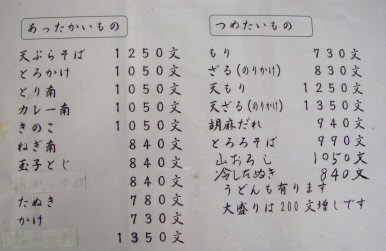 あったかいもの
天ぷらそば 1250文
とろかけ 1050文
とり南 1050文
カレー南 1050文
きのこ 1050文
ねぎ南 840文
玉子とじ 840文
840文
たぬき 780文
かけ 730文
1350文
つめたいもの
もり 730文
ざる(のりかけ) 830文
天もり 1250文
天ざる(のりかけ) 1350文
胡麻だれ 940文
とろろそば 990文
山おろし 1050文
冷したぬき 840文
うどんも有ります
大盛りは200文増しです